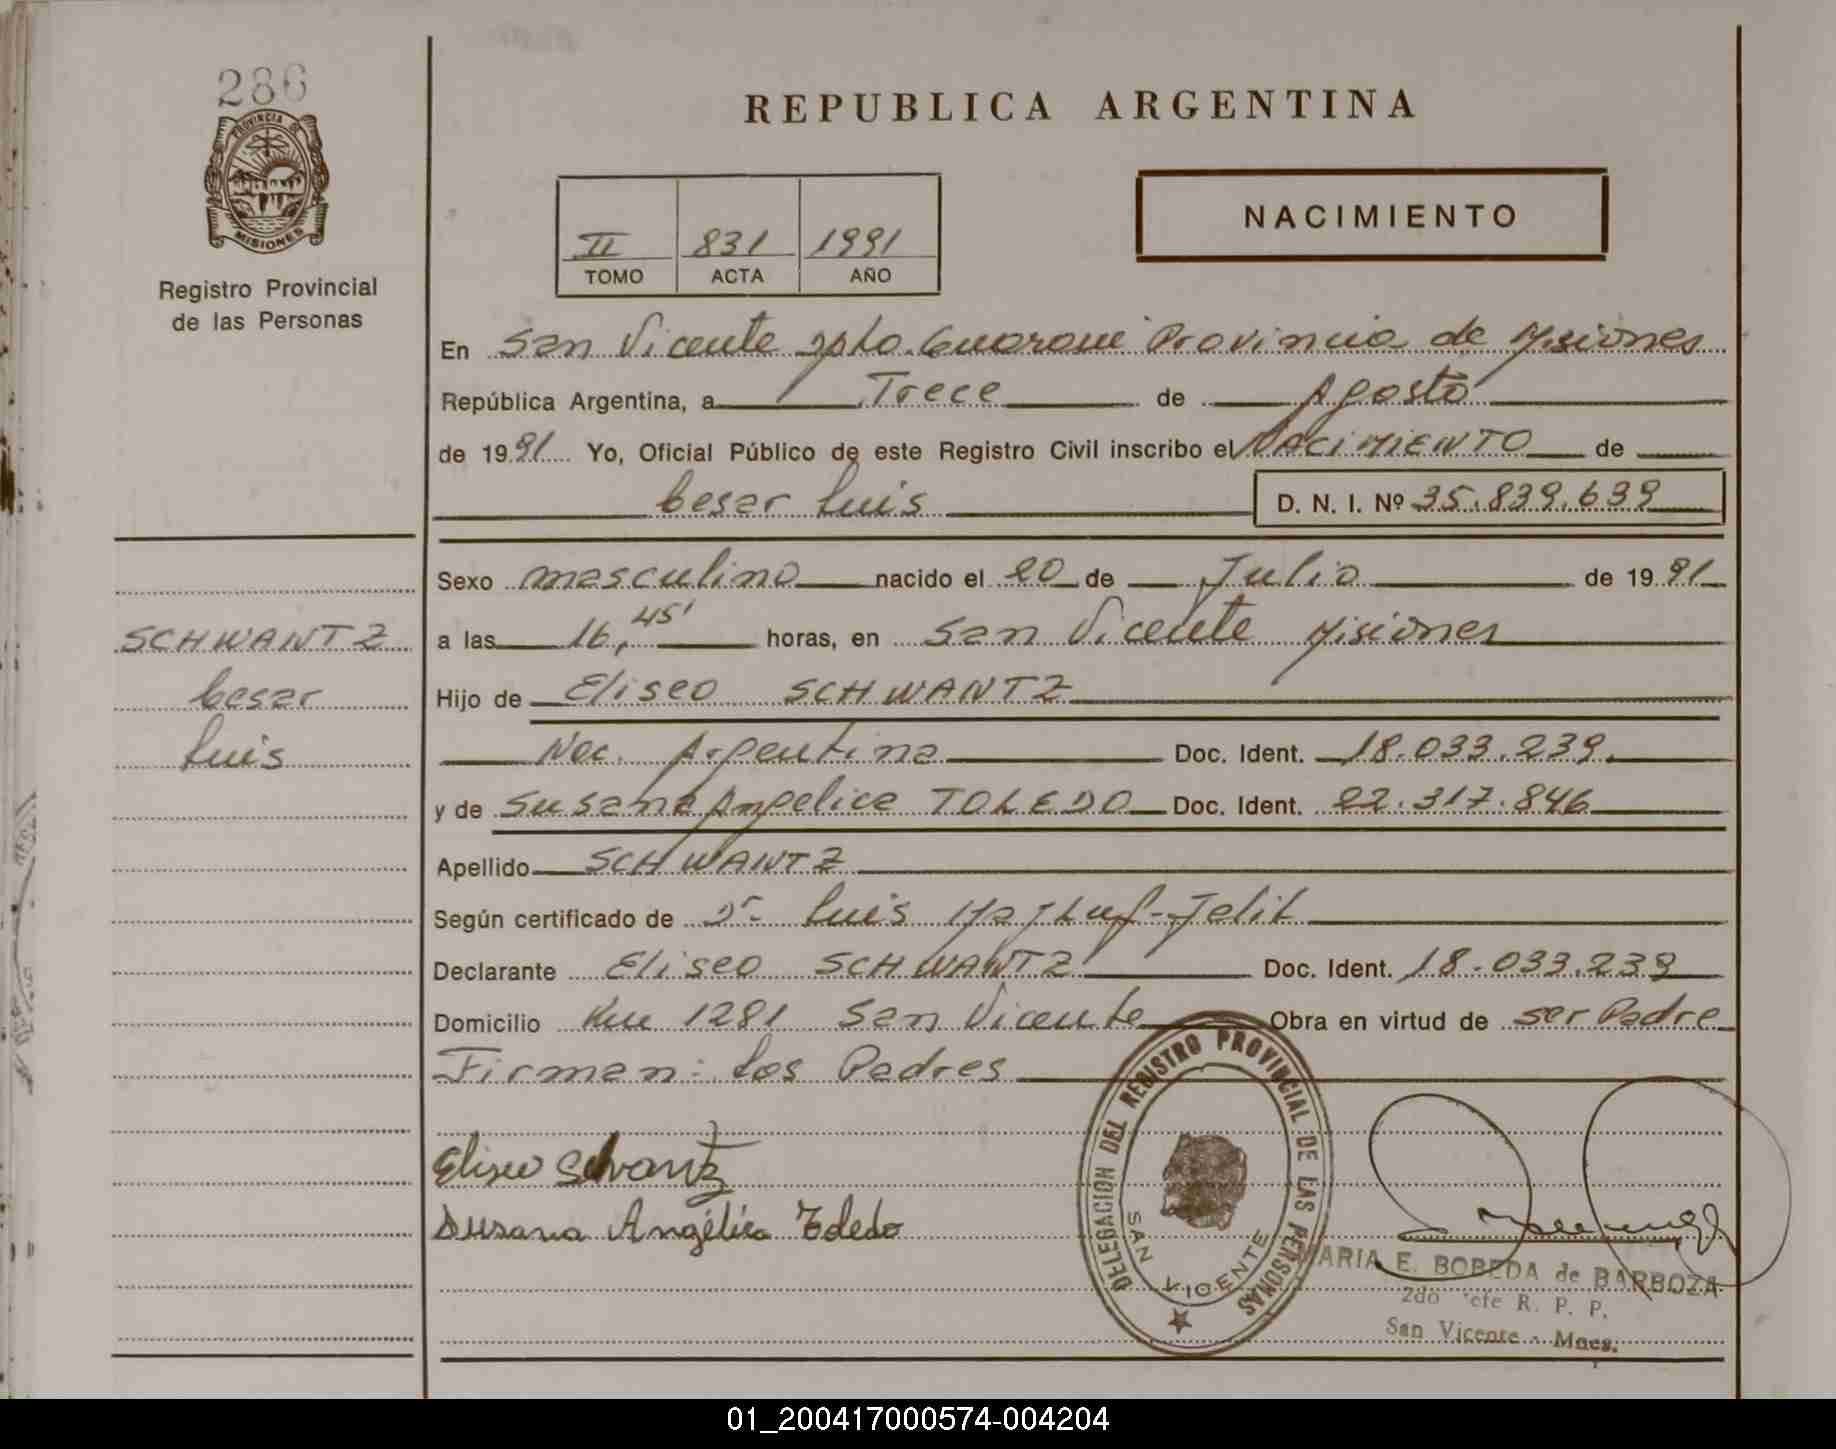 286
PROVINCIA DE
MISIONES
Registro Provincial
de las Personas
REPUBLICA ARGENTINA
II 831 1991
TOMO ACTA AÑO
NACIMIENTO
En San Vicente Dpto. Guarani Provincia de Misiones
República Argentina, a Trece de Agosto
de 1991 Yo, Oficial Público de este Registro Civil inscribo el NACIMIENTO de
Cesar Luis D. N. I. Nº 35.839.639
Sexo masculino nacido el 20 de Julio de 1991
a las 16,45' horas, en San Vicente Misiones
Hijo de Eliseo SCHWANTZ
Nac. Argentina Doc. Ident. 18.033.239.
y de Susana Angelica TOLEDO Doc. Ident. 22.317.846
Apellido SCHWANTZ
Según certificado de Dr. Luis
Declarante Eliseo SCHWANTZ Doc. Ident. 18.033.239
Domicilio Km 1281 San Vicente Obra en virtud de ser Padre
Firman: Los Padres
SCHWANTZ
Cesar
Luis
Eliseo Schvantz
Susana Angélica Toledo
DELEGACION DEL REGISTRO PROVINCIAL DE LAS PERSONAS
SAN VICENTE
MARIA E. BOBEDA de BARBOZA
2do Jefe R. P. P.
San Vicente - Mnes.
01_200417000574-004204